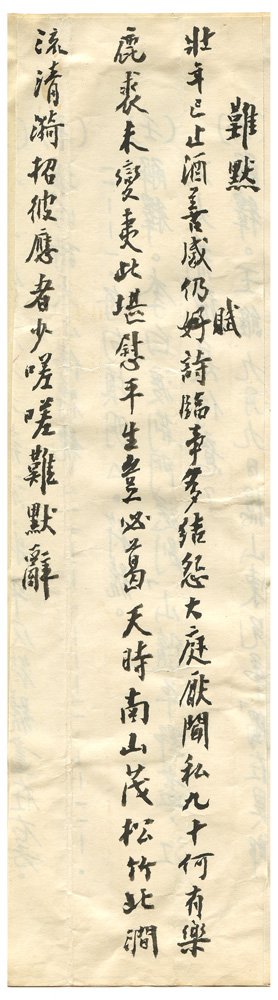 難默
壯年已止酒善感仍好詩臨事多結怨大庭厭聞私九十何有樂
賦
鹿裘未變夷此堪慰平生豈必葛天時南山茂松竹北澗
流清漪招彼應者少嗟嗟難默辭